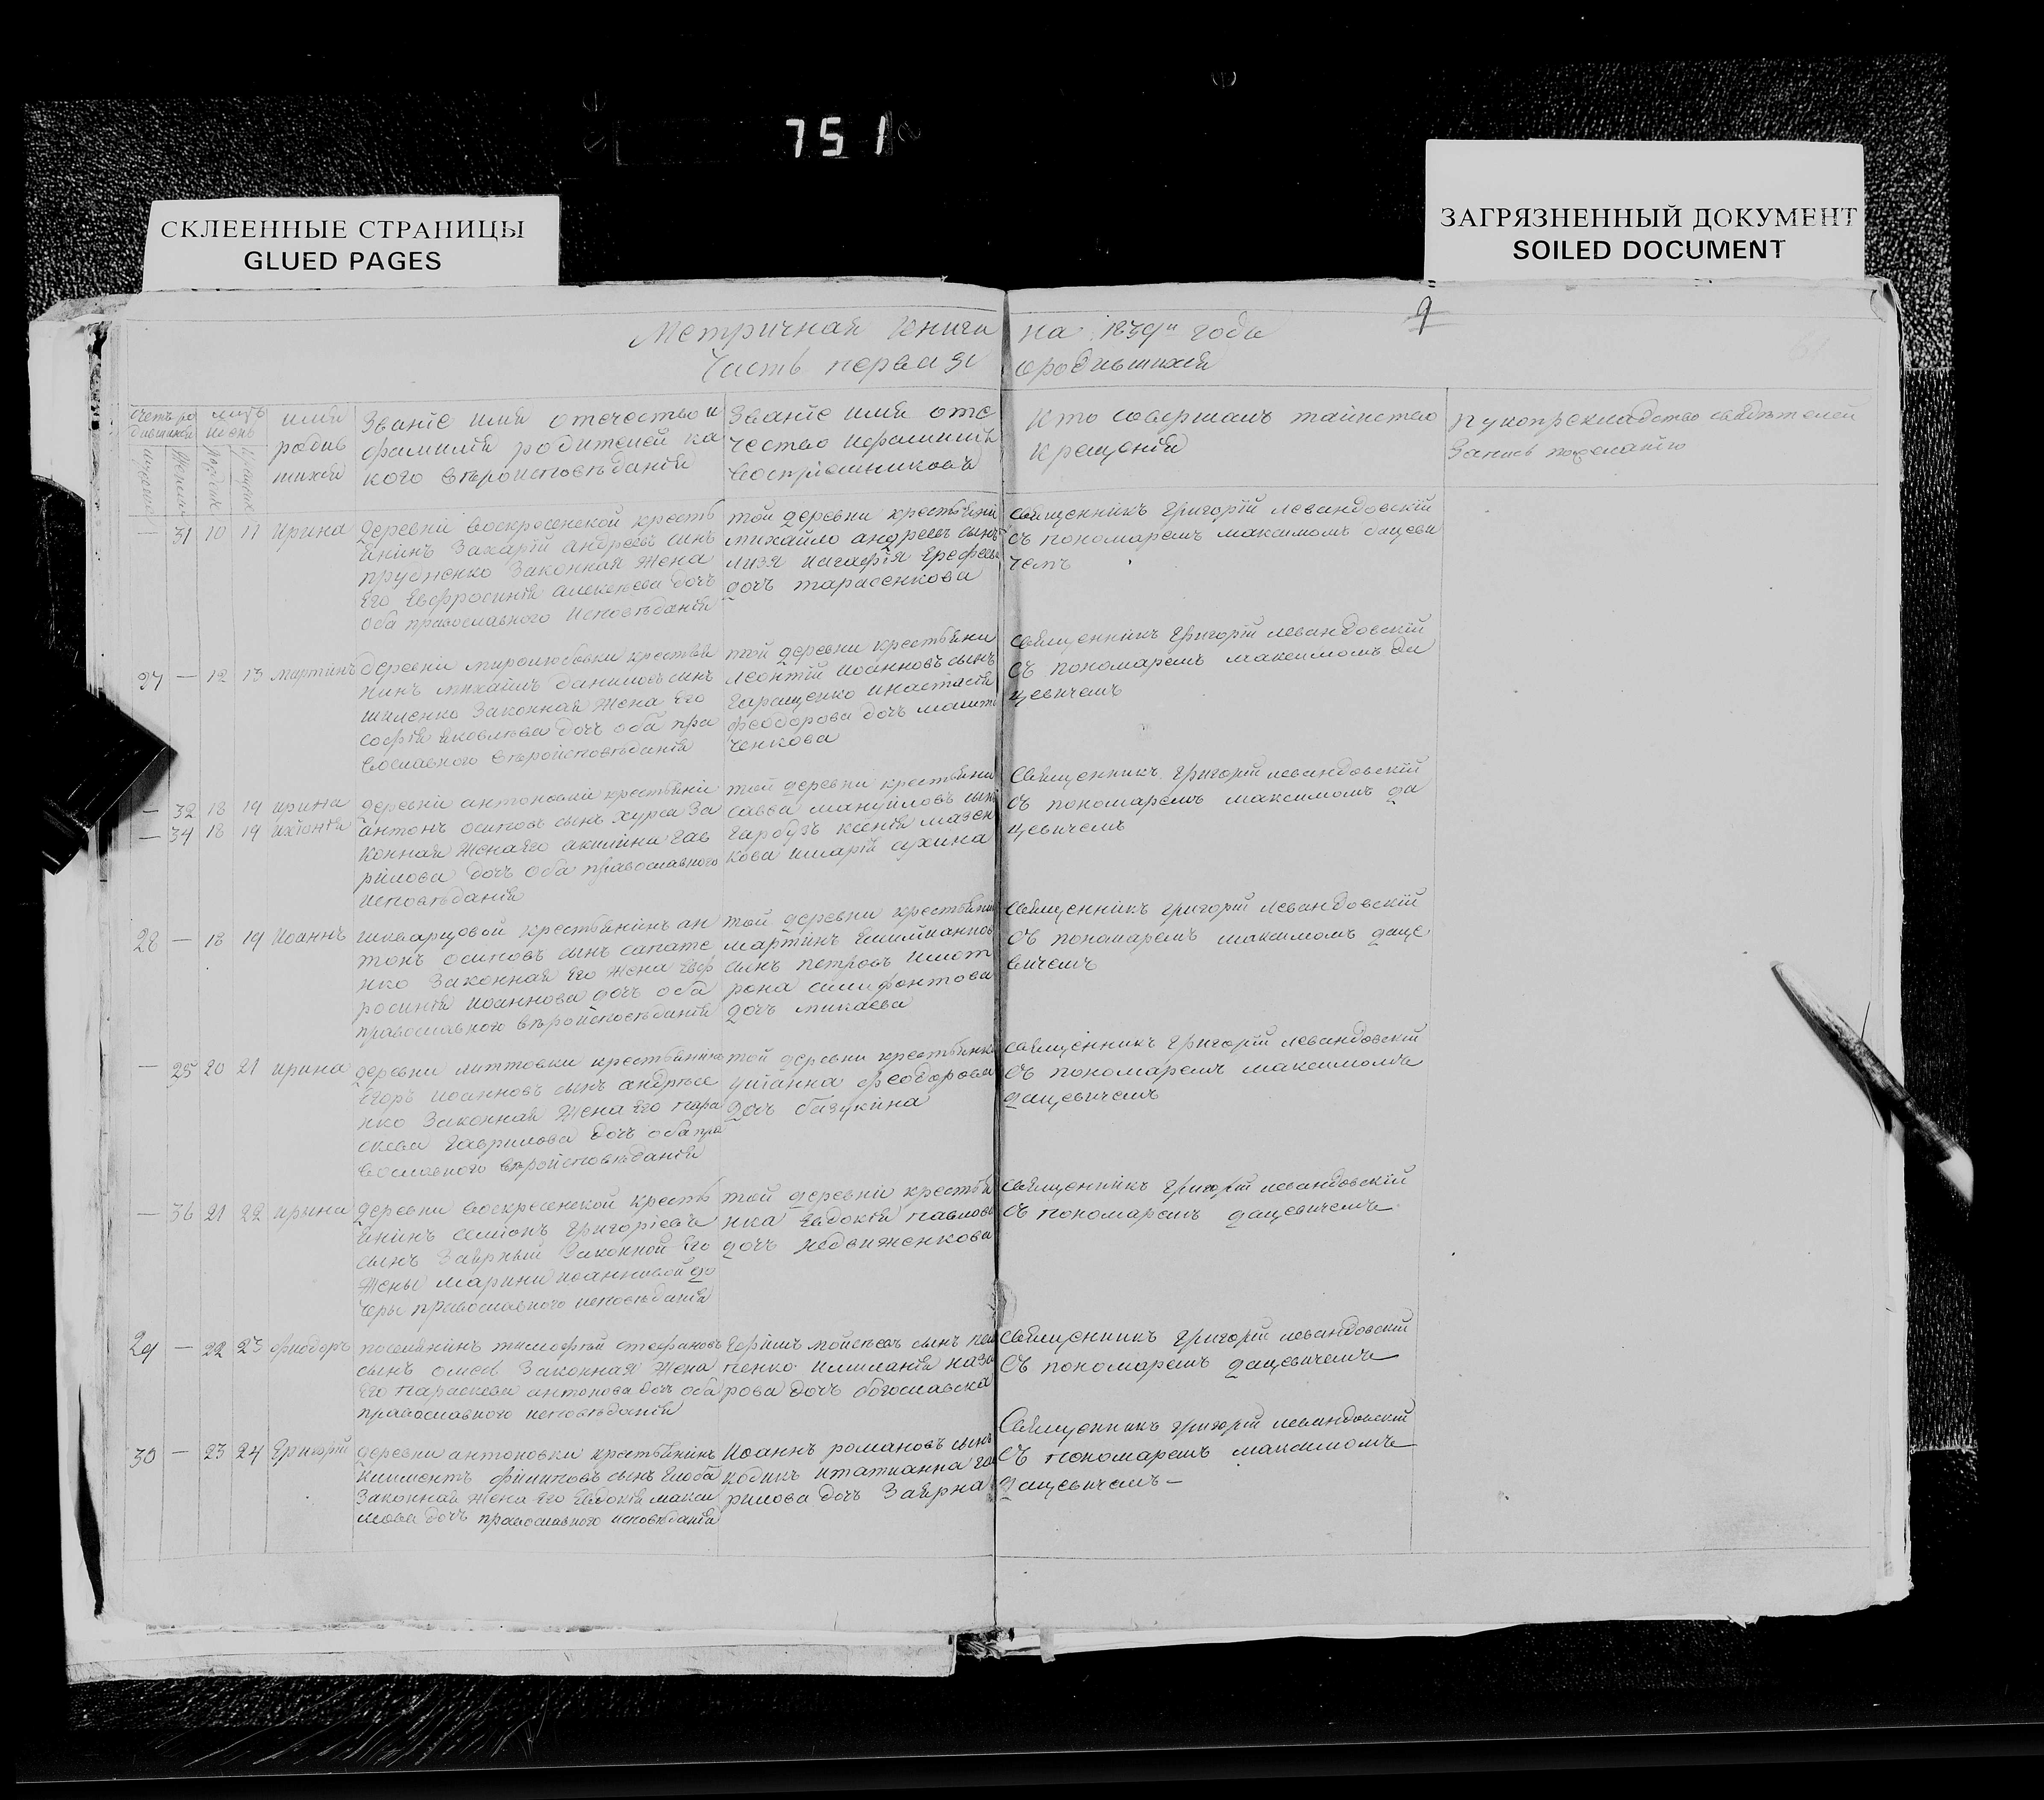 751
СКЛЕЕННЫЕ СТРАНИЦЫ
GLUED PAGES
ЗАГРЯЗНЕННЫЙ ДОКУМЕНТ
SOILED DOCUMENT
9
Метричная книга на 1839 года
Часть первая ородившихся
имя
родив
шихся
Званіе имя отечество и
фамилія родителей ка
кого вѣроисповѣданія
Званіе имя оте
чество ифамилія
воспріемниковъ
Кто совершалъ таинство
крещенія
Рукоприкладство свидѣтелей
Запись пожеланію
— 31 10 11 Ирина
деревни воскресенской кресть
янинъ Захарій андреевъ сынъ
прудченко Законная Жена
Его Евфросинія алексѣева дочь
оба православного Исповѣданія
той деревни крестьяни
михайло андреевъ сынъ
дочь тарасенкова
священникъ григорій левандовскій
съ пономаремъ максимомъ дацеви
чемъ
27 — 12 13 мартинъ
деревни миролюбовки крестья
нинъ михаилъ даниловъ сынъ
шиленко Законная Жена Его
софія яковлева дочь оба пра
вославного вѣроисповѣданія
той деревни крестьяни
леонтій иоанновъ сынъ
Геращенко инастасія
феодорова дочь
ченкова
священникъ григорій левандовскій
съ пономаремъ максимомъ да
цевичемъ
— 32 18 19 ирина
— 34 18 19
деревни антоновки крестьяни
антонъ осиповъ сынъ хурса За
конная Женаего акилина гав
рилова дочь оба православного
исповѣданія
той деревни крестьяни
савва мануиловъ сынъ
гарбузъ ксенія мазен
кова имарія сухина
Священникъ григорій левандовскій
съ пономаремъ максимомъ да
цевичемъ
28 — 18 19 Иоаннъ
шварцовой крестьянинъ ан
тонъ осиповъ сынъ сапате
нко Законная Его Жена Евф
росинія иоаннова дочь оба
православного вѣроисповѣданія
той деревни крестьяни
мартинъ Емилиановъ
сынъ петровъ имат
рона
дочь минаева
священникъ григорій левандовскій
съ пономаремъ максимомъ даце
вичемъ
— 35 20 21 ирина
деревни литтовки крестьянинъ
Егоръ иоанновъ сынъ андрѣе
нко Законная Жена Его пара
скева гаврилова дочь оба пра
вославного вѣроисповѣданія
той деревни крестьянка
улianна феодорова
дочь базукина
священникъ григорій левандовскій
съ пономаремъ максимомъ
дацевичемъ
— 36 21 22 ирина
деревни воскресенской кресть
янинъ семіонъ григоріевъ
сынъ Заярный Законной Его
Жены марини иоанновой до
черы православного исповѣданія
той деревни крестья
нка Евдокія павлова
дочь недвиженкова
священникъ григорій левандовскій
съ пономаремъ дацевичемъ
29 — 22 23 Фиодоръ
поселянинъ тимофѣй стефановъ
сынъ Законная Жена
Его параскева антонова дочь оба
православного исповѣданія
Ефимъ мойсѣевъ сынъ
пенко имиланія наза
рова дочь богославска
священникъ григорій левандовскій
съ пономаремъ дацевичемъ
30 — 23 24 Григорій
деревни антоновки крестьянинъ
климентъ филиповъ сынъ
Законная Жена Его Евдокія макси
мова дочь православного исповѣданія
Иоаннъ романовъ сынъ
кодикъ итатианна гав
рилова дочь Заярна
Священникъ григорій левандовскій
съ пономаремъ максимомъ
дацевичемъ —